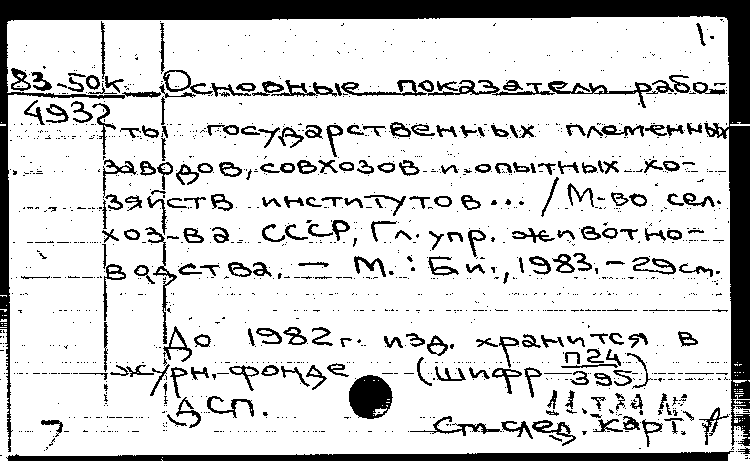 1.
83-50к Основные показатели рабо-
4932
ты государственных племенных
заводов, совхозов и опытных хо-
зяйств институтов... / М-во сел.
хоз-ва СССР, Гл. упр. животно-
водства. — М.: Б.и., 1983. - 29 см.
До 1982 г. изд. хранится в
журн. фонде (шифр П24/395).
ДСП.
См. след. карт.